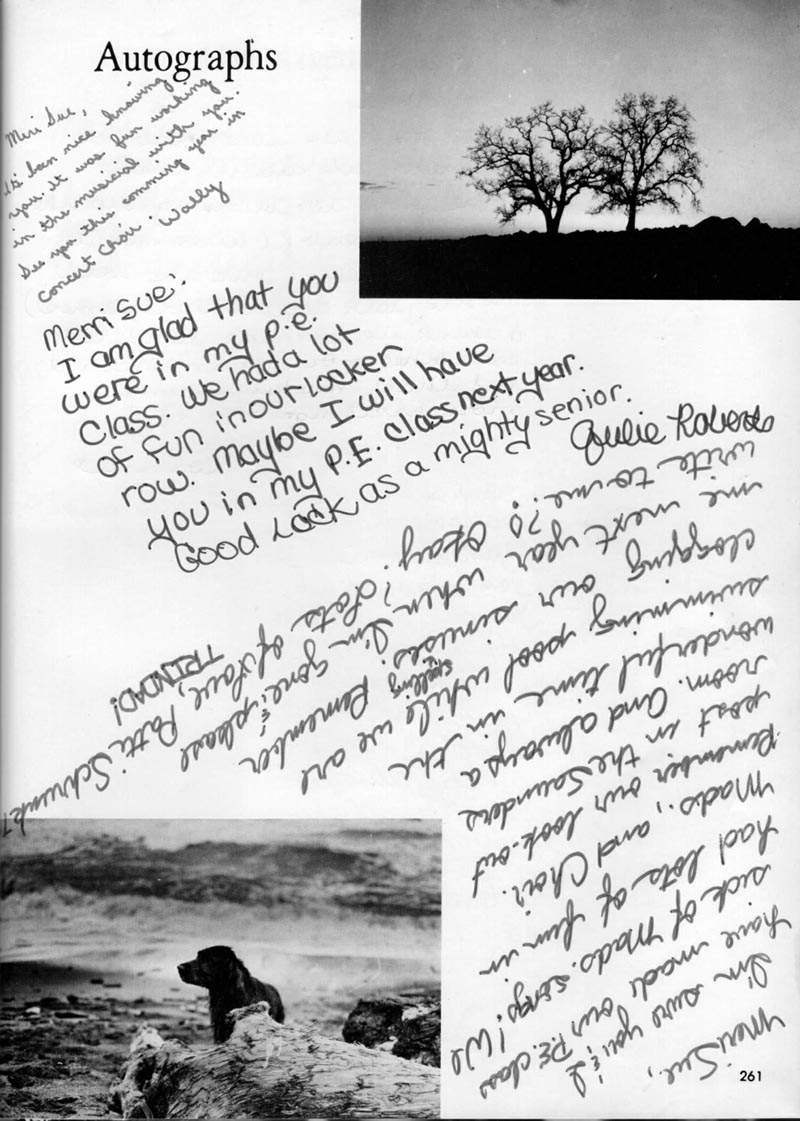 Autographs
Merri Sue,
It's been nice knowing
you. it was fun working
in the musical with you.
See you this comming year in
concert choir. Wally
Merri Sue:
I am glad that you
were in my p.e.
class. We had a lot
of fun in our locker
row. Maybe I will have
you in my P.E. class next year.
Good Lock as a mighty senior.
Julie Roberts
Merri Sue,
I'm sure you & I
have made our P.E. class
sick of Mads. songs! We
had lots of fun in
Mads., and Choir.
Remember our look-out
post in the Saunders
room. And always a
wonderful time in the
swimming pool while we are
clogging our sinuses. Remember
spelling
me next year when I'm gone, & please
write to me!? Okay? Lots of Love, Patti Schrunk?
TRINDAD!
261